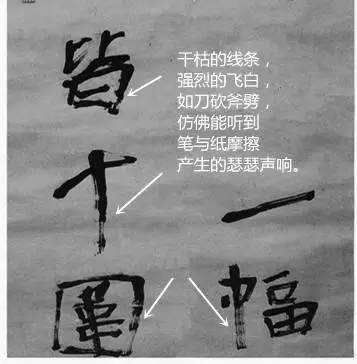 干枯的线条，
强烈的飞白，
如刀砍斧劈，
仿佛能听到
笔与纸摩擦
产生的瑟瑟声响。
一幅
皆十圍